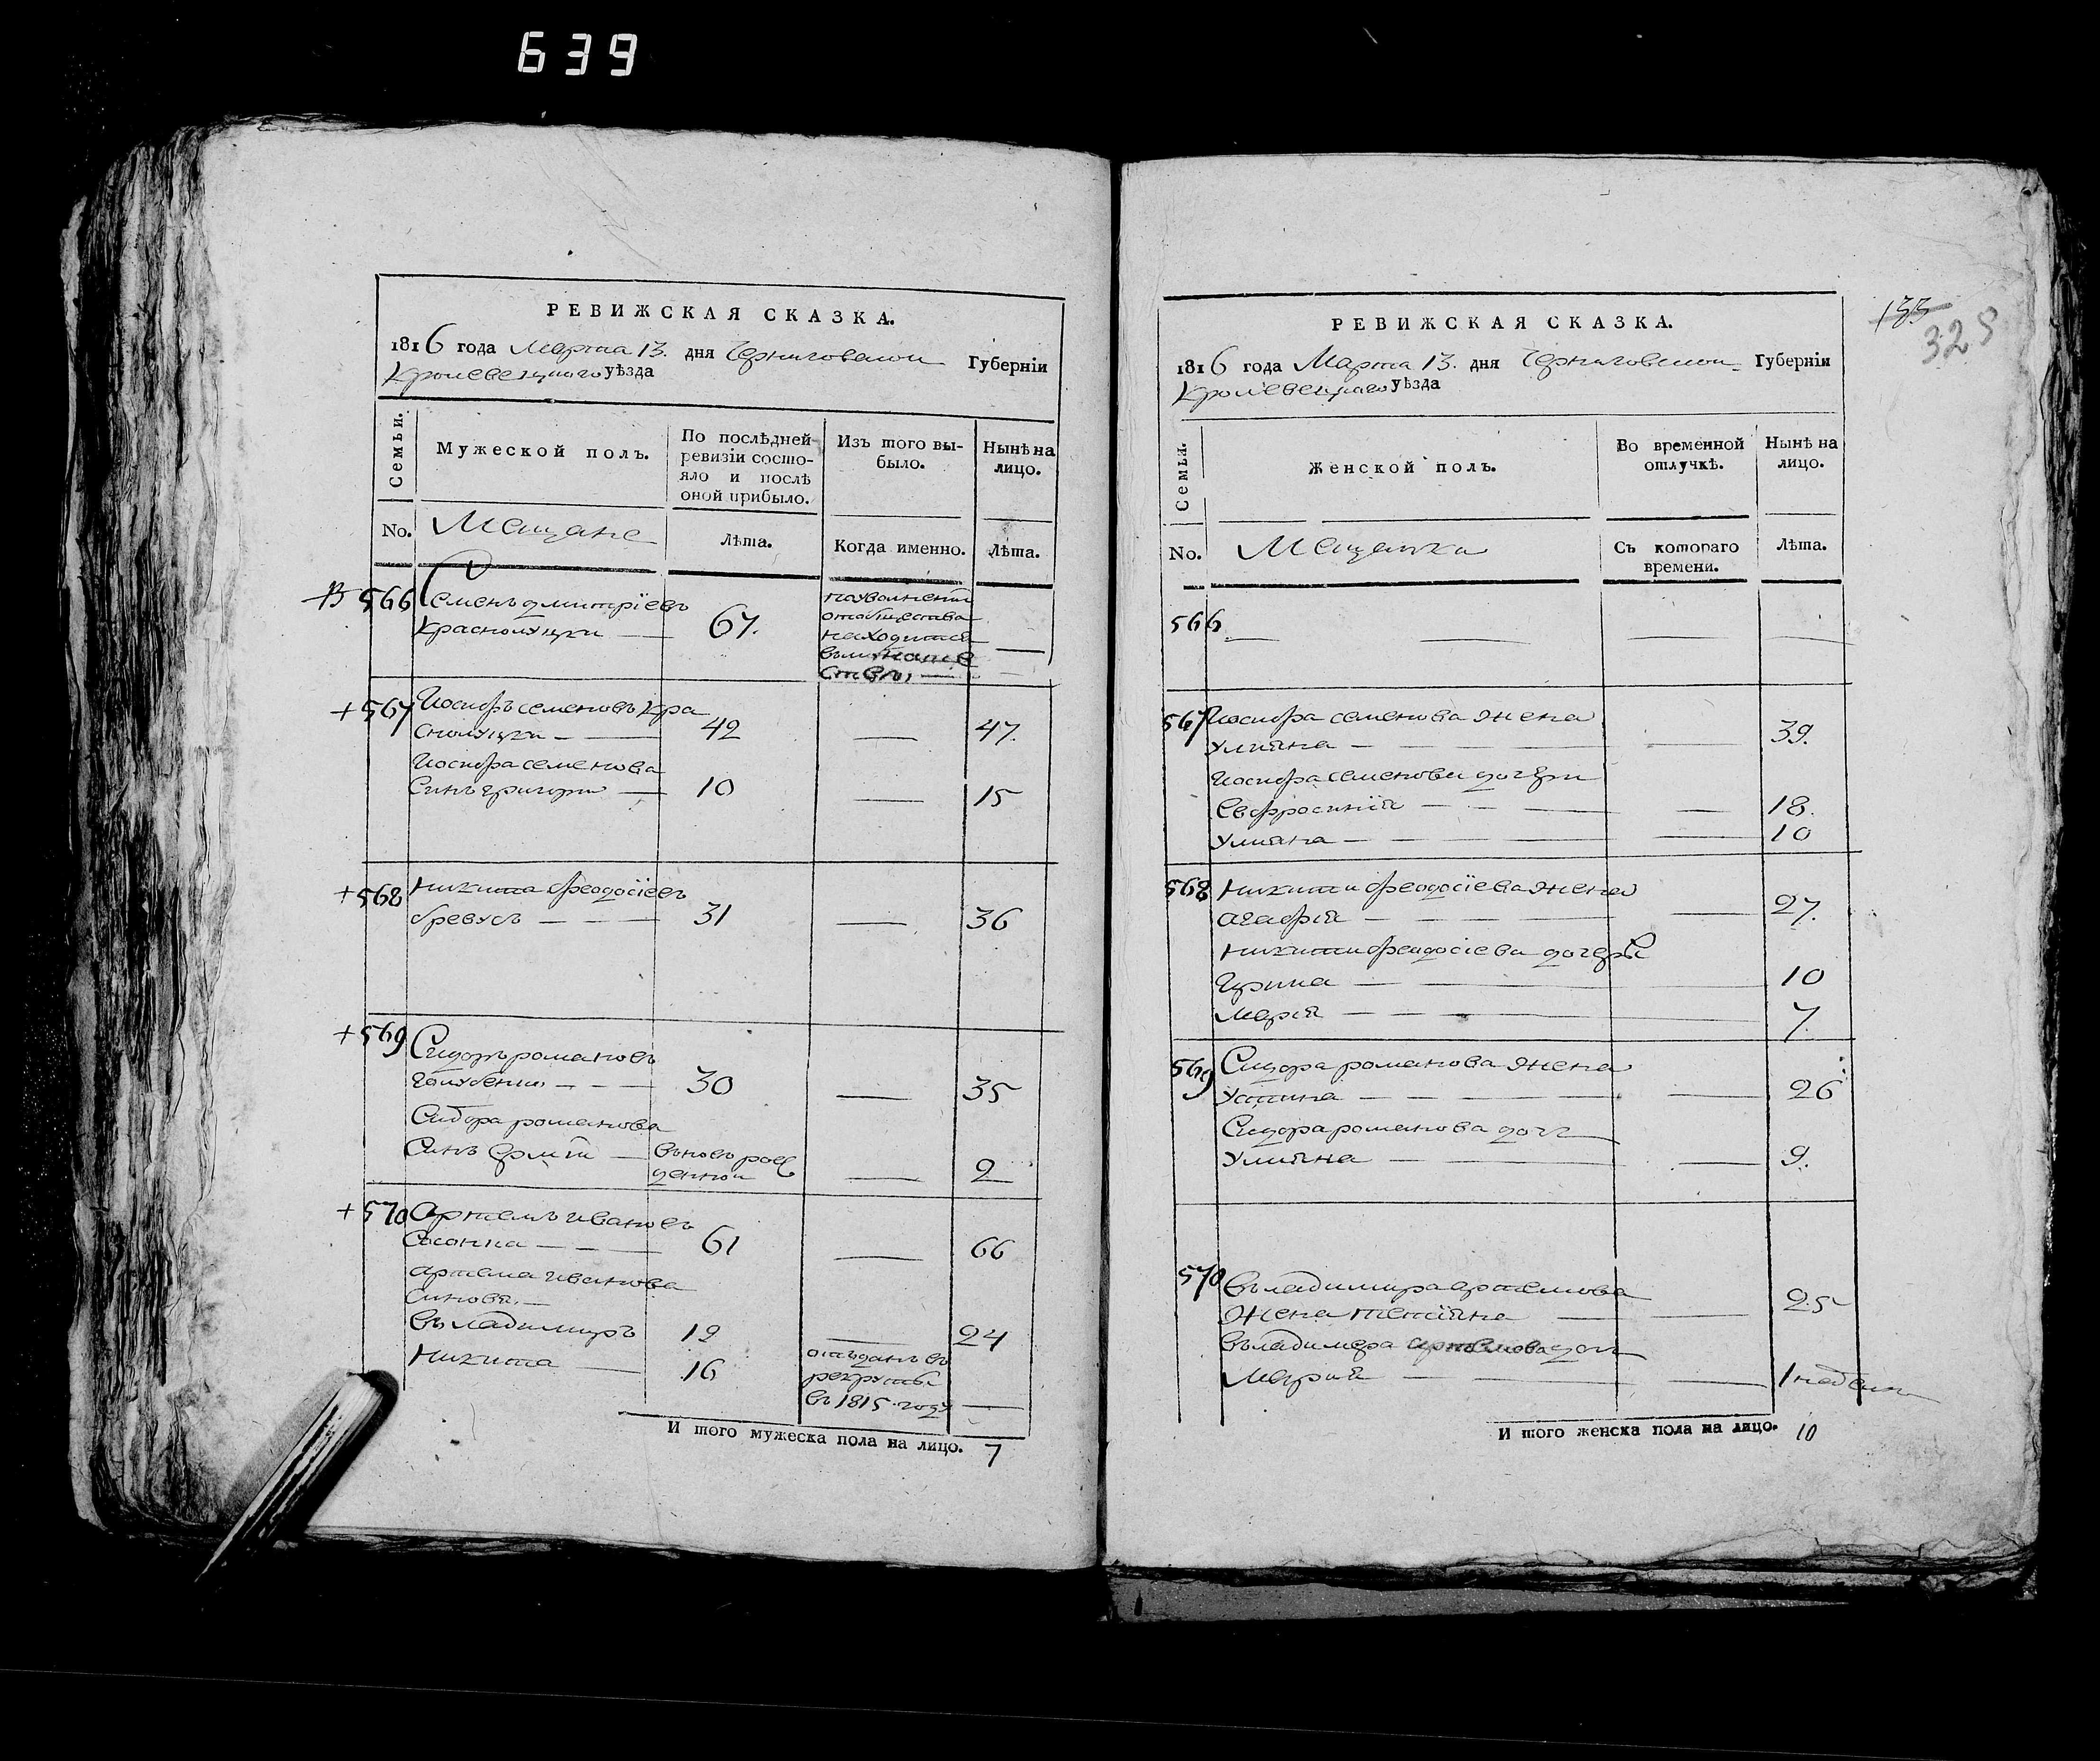 639
РЕВИЖСКАЯ СКАЗКА.
1816 года Марта 13. дня Черниговской Губернїи
Кролевецкаго уѣзда
Семьи.
Мужеской полъ.
По послѣдней
ревизїи состо-
яло и послѣ
оной прибыло.
Изъ того вы-
было.
Нынѣ на
лицо.
No.
Мещане
Лѣта.
Когда именно.
Лѣта.
566 Семенъ дмитрїевъ
67.
поувольненїи
отобщества
находится
+567 Иосифъ семеновъ кра
42 — 47.
Иосифа семенова
Синъ григори — 10 — 15
+568 Никита феодосїевъ
31 — 36
+569 Сидоръ романовъ
30 — 35
Сидора романова
Синъ — вьновь рож
денной — 2
+570 Артемъ ивановъ
61 — 66
артема иванова
Синовя. —
вьладимиръ 19 — 24
Никита — 16 отъданъ въ
рекруты
въ 1815 году —
И того мужеска пола на лицо. 7
133
325
РЕВИЖСКАЯ СКАЗКА.
1816 года Марта 13. дня Черниговской Губернїи
Кролевецкаго уѣзда
Семья.
Женской полъ.
Во временной
отлучкѣ.
Нынѣ на
лицо.
No.
Мещанки
Съ котораго
времени.
Лѣта.
566 — — — —
567 Иосифа семенова жена
Улияна — — — 39.
Иосифа семенова дочери
Евфросинїя — — — 18.
Улияна — — 10
568 Никити феодосїева жена
агафїя — — — 27.
Никити феодосїева дочери
Ирина — — 10
Марїя — — — 7
569 Сидора романова жена
Устина — — — 26
Сидора романова дочь
Улияна — — — 9.
570 вьладимира артемова
Жена татїяна — — 25
вьладимера артемова дочь
Марїя — — — 1 недели
И того женска пола на лицо. 10